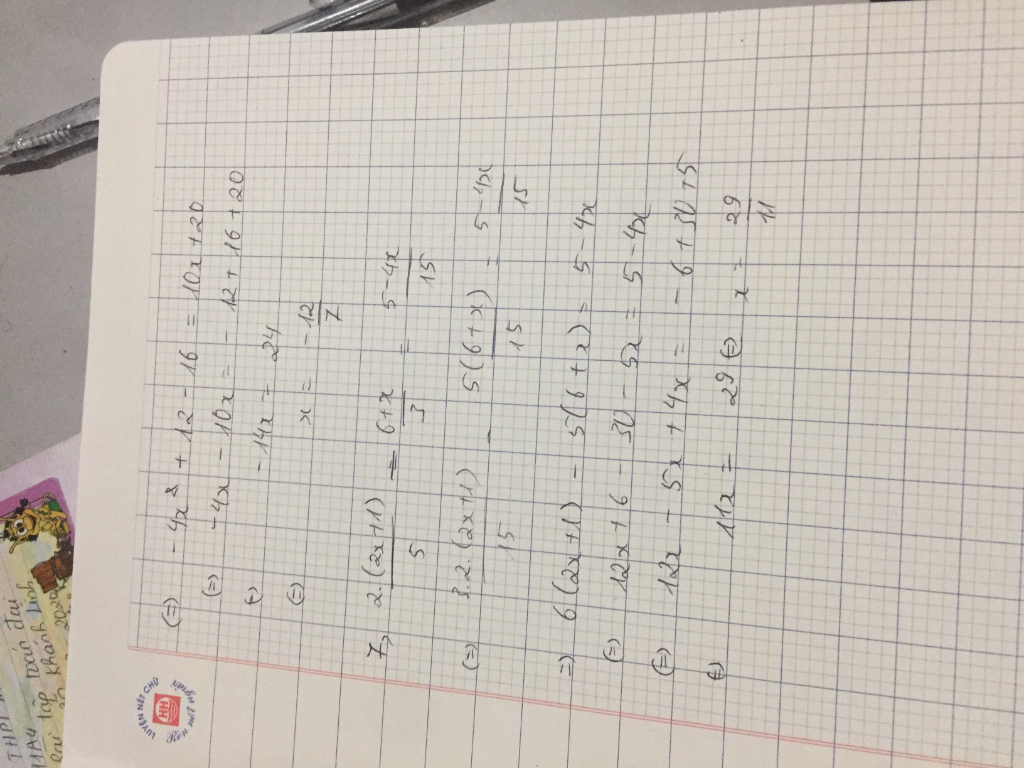 (=) -4x + 12 - 16 = 10x + 20
(=) -4x - 10x = - 12 + 16 + 20
(=) -14x = 24
(=) x = -12/7
7, 2.(2x+1)/5 - 6+x/3 = 5-4x/15
(=) 3.2.(2x+1)/15 - 5(6+x)/15 = 5-4x/15
=) 6(2x+1) - 5(6+x) = 5-4x
(=) 12x + 6 - 30 - 5x = 5-4x
(=) 12x - 5x + 4x = - 6 + 30 + 5
(=) 11x = 29 (=) x = 29/11
LUYỆN NẾT CHỮ
HH
Rèn nết người
THPT